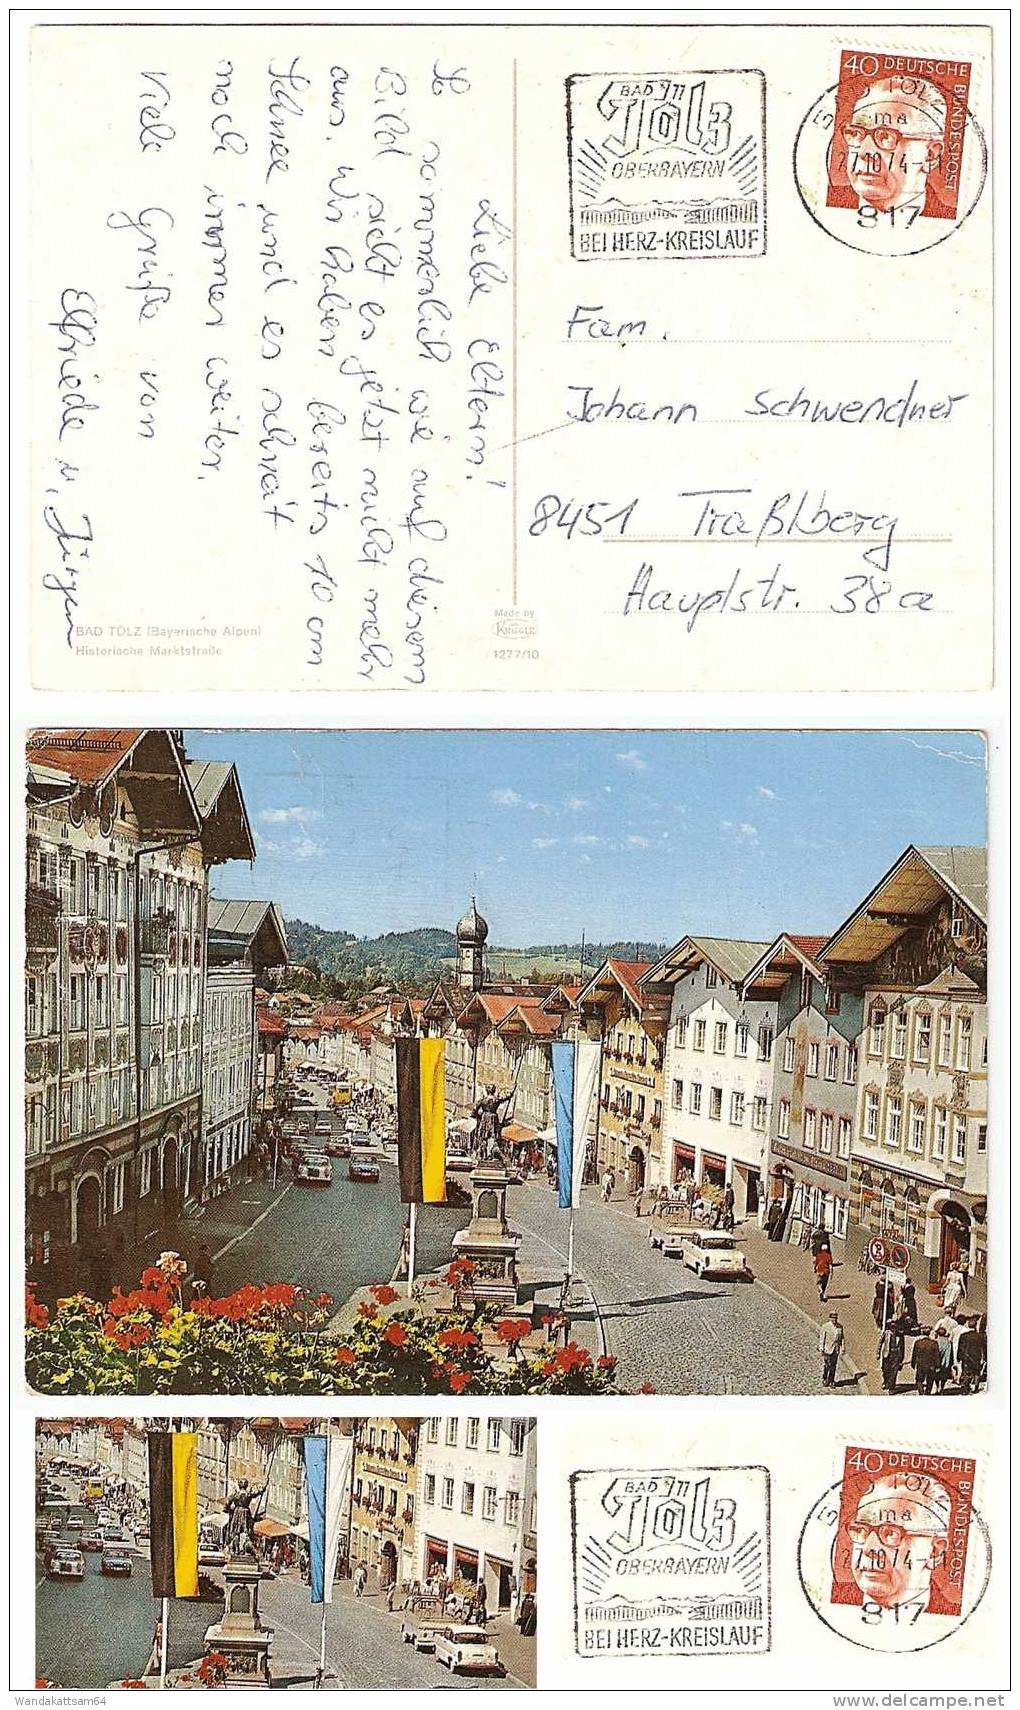 Liebe Eltern!
So sommerlich wie auf diesem
Bild sieht es jetzt nicht mehr
aus. Wir haben bereits 10 cm
Schnee und es schneit
noch immer weiter.
Viele Grüße von
Elfriede u. Jürgen
BAD TÖLZ (Bayerische Alpen)
Historische Marktstraße
Made by
KRÜGER
1277/10
BAD
Tölz
OBERBAYERN
BEI HERZ-KREISLAUF
40 DEUTSCHE
BUNDESPOST
BAD TÖLZ
ma
27.10.74-11
817
Fam.
Johann Schwendner
8451 Traßlberg
Hauptstr. 38a
BAD
Tölz
OBERBAYERN
BEI HERZ-KREISLAUF
40 DEUTSCHE
BUNDESPOST
BAD TÖLZ
ma
27.10.74-11
817
Wandakattsam64
©delcampe.net